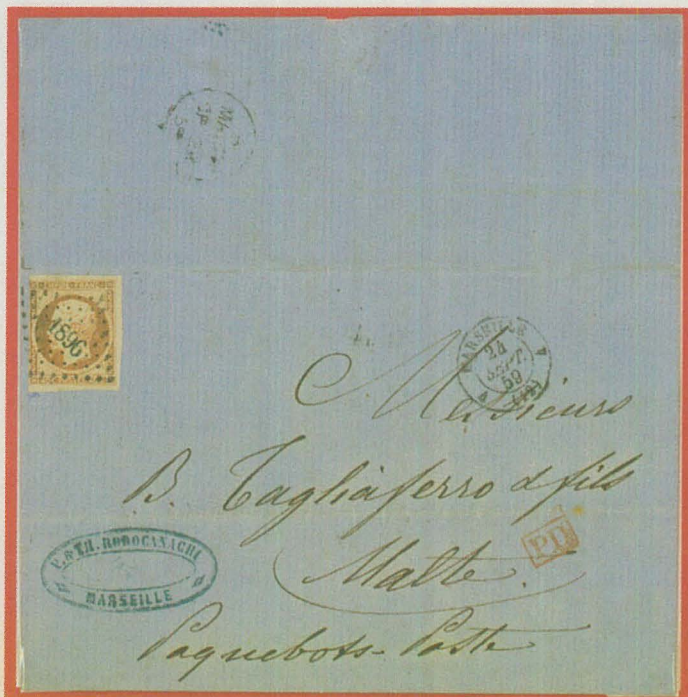 1896
MARSEILLE
24
SEPT.
59
(12)
Messieurs
B. Tagliaferro & fils
Malte.
Paquebots-Poste
P.D
P. & TH. RODOCANACHI
MARSEILLE